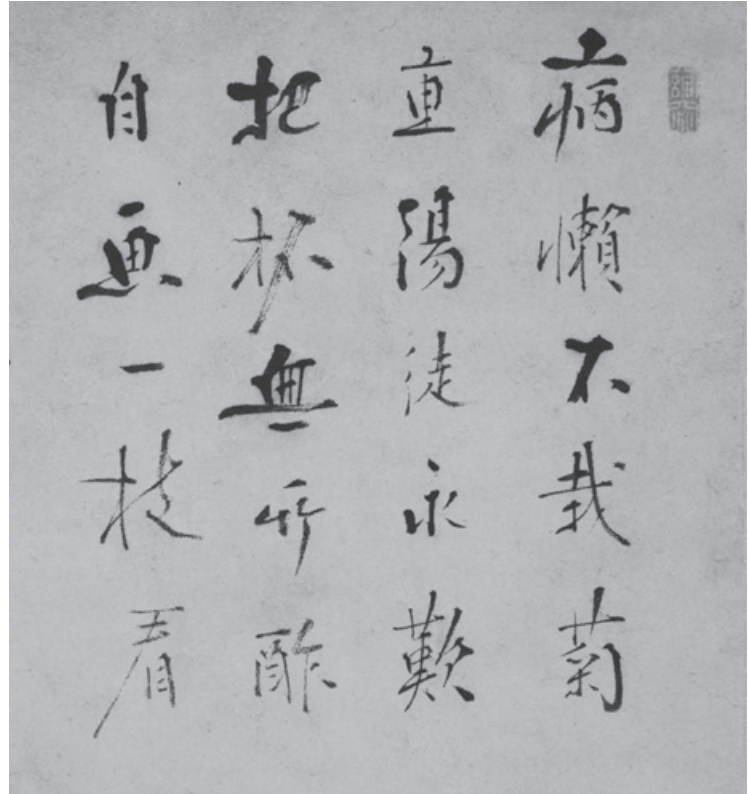 病懶不栽菊
重陽徒永歎
把杯無所酢
自画一枝看